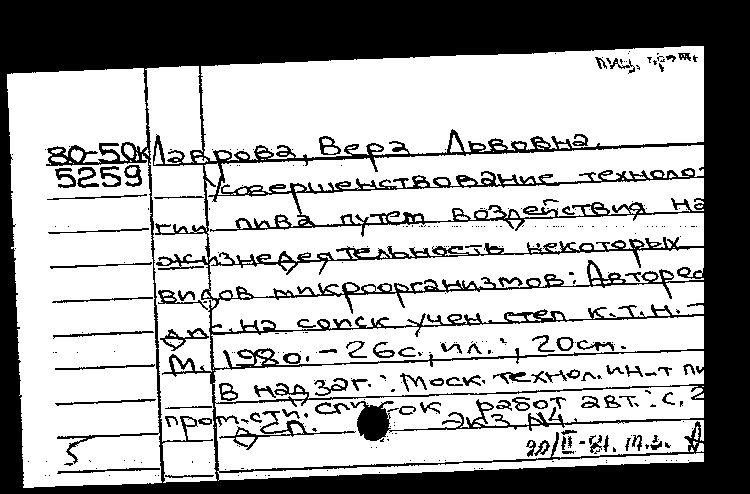 пищ.
80-50к Лаврова, Вера Львовна.
5259 Усовершенствование техноло-
гии пива путем воздействия на
жизнедеятельность некоторых
видов микроорганизмов: Авторе
дис. на соиск учен. степ к.т.н. -
М. 1980. - 26с., ил.; 20см.
В надзаг.: Моск. технол. ин-т пи
пром-сти. Список работ авт.: с. 2
СП. Экз. N4.
5 20/II-81. м.з.